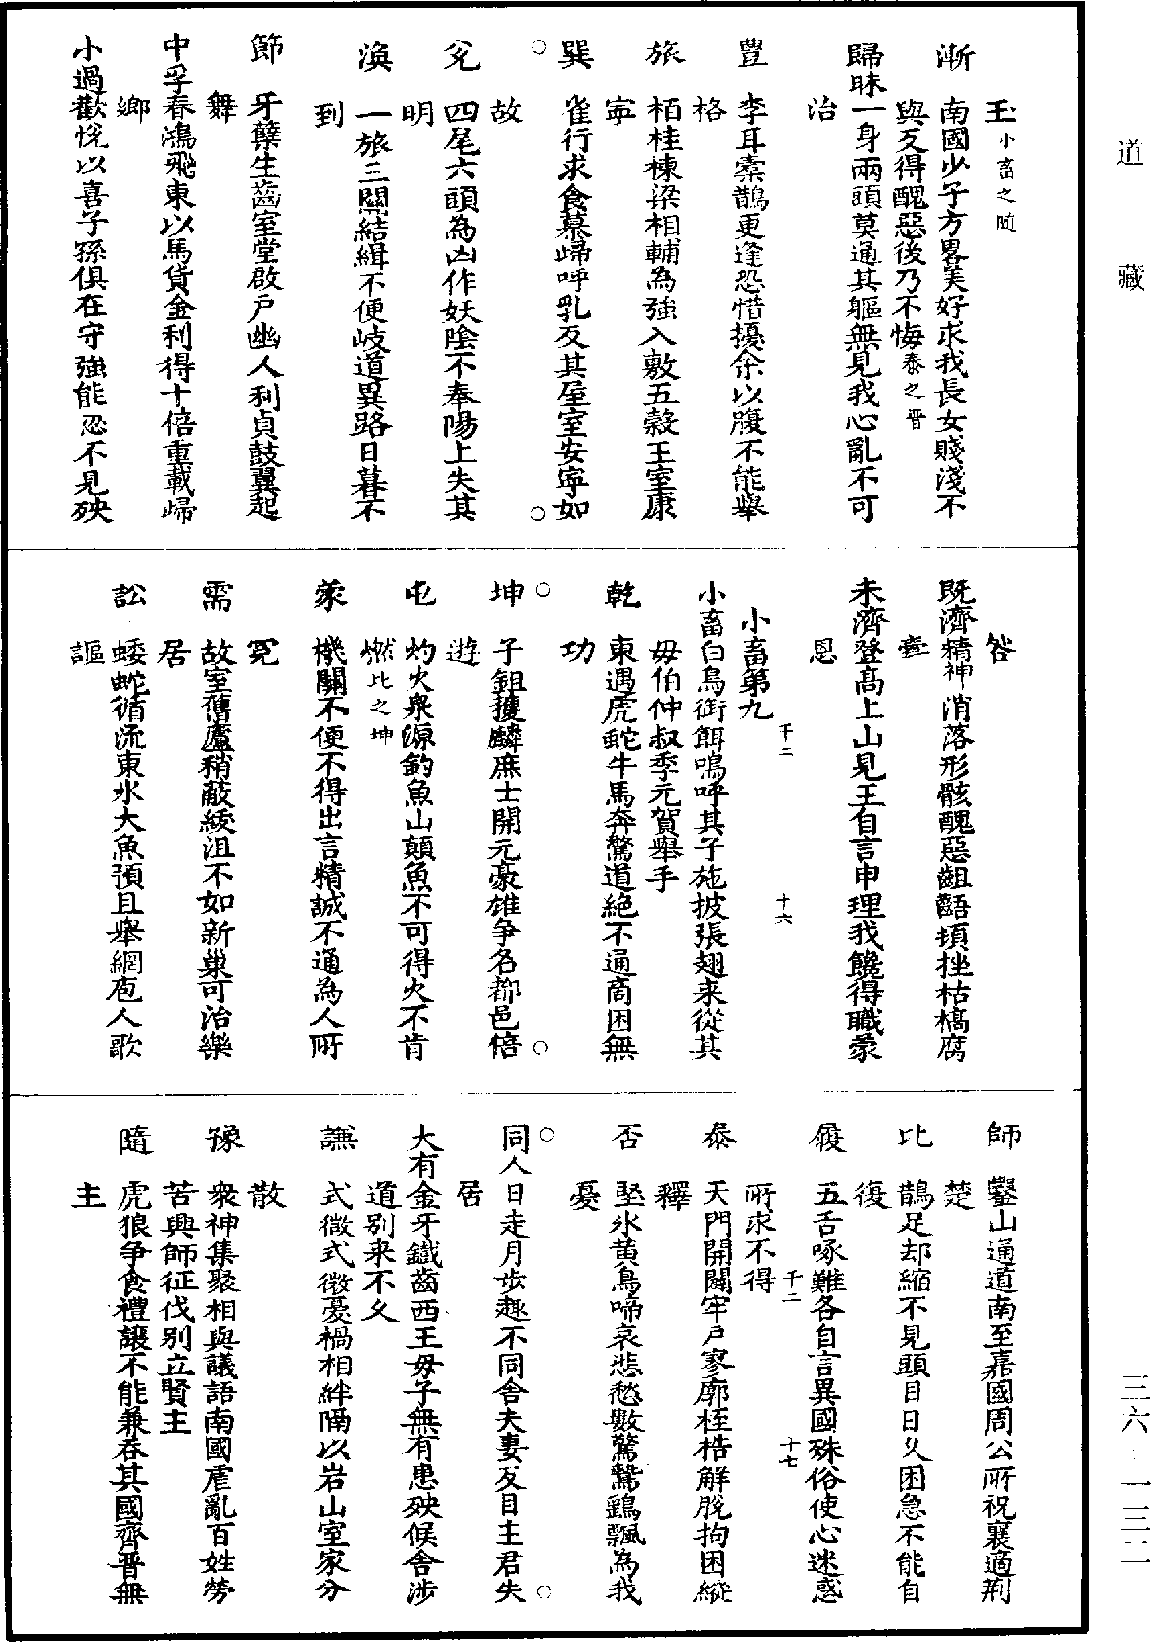 道藏
三六-一三二
玉小畜之隨
漸　南國少子方畧美好求我長女賤淺不
與反得醜惡後乃不悔泰之晉
歸昧一身兩頭莫適其軀無見我心亂不可
治
豐　李耳彙鵲更逢恐惜擾余以腹不能舉
格
旅　栢桂棟梁相輔為強入敷五穀王室康
寧
巽　雀行求食慕歸呼乳反其屋室安寧如
故
兌　四尾六頭為凶作妖陰不奉陽上失其
明
渙　一旅三關結緝不便岐道異路日暮不
到
節　牙櫱生齒室堂啟戶幽人利貞鼓翼起
舞
中孚春鴻飛東以馬貨金利得十倍重載歸
鄉
小過歡悅以喜子孫俱在守強能忍不見殃
咎
既濟精神消落形骸醜惡齟齬頓挫枯槁腐
蠹
未濟登高上山見王自言申理我饞得職蒙
恩
小畜第九
千二
十六
小畜白鳥銜餌鳴呼其子施披張翅来從其
毋伯仲叔季元賀舉手
乾　東遇虎蛇牛馬奔驚道絕不通商困無
功
坤　子鉏擭麟庶士開元豪雄争名都邑倍
遊
屯　灼火衆源釣魚山顛魚不可得火不肯
燃比之坤
蒙　機關不便不得出言精誠不通為人所
冤
需　故室舊廬稍蔽綾沮不如新巢可治樂
居
訟　蜲蛇循流東水大魚預且舉網庖人歌
謳
師　鑿山通道南至嘉國周公所祝襄適荆
楚
比　鵲足却縮不見頭目日久困急不能自
復
履　五舌啄難各自言異國殊俗使心迷惑
所求不得
千二
十七
泰　天門開闢牢戶寥廓桎梏解脫拘困縱
釋
否　堅氷黄鳥啼哀悲愁數驚鷙鷄飄為我
憂
同人日走月步趣不同舍夫妻反目主君失
居
大有金牙鐵齒西王毋子無有患殃候舍涉
道別来不久
謙　式微式微憂禍相絆隔以岩山室家分
散
豫　衆神集聚相與議語南國虐亂百姓勞
苦興師征伐別立賢主
隨　虎狼争食禮讓不能兼吞其國齊晋無
主